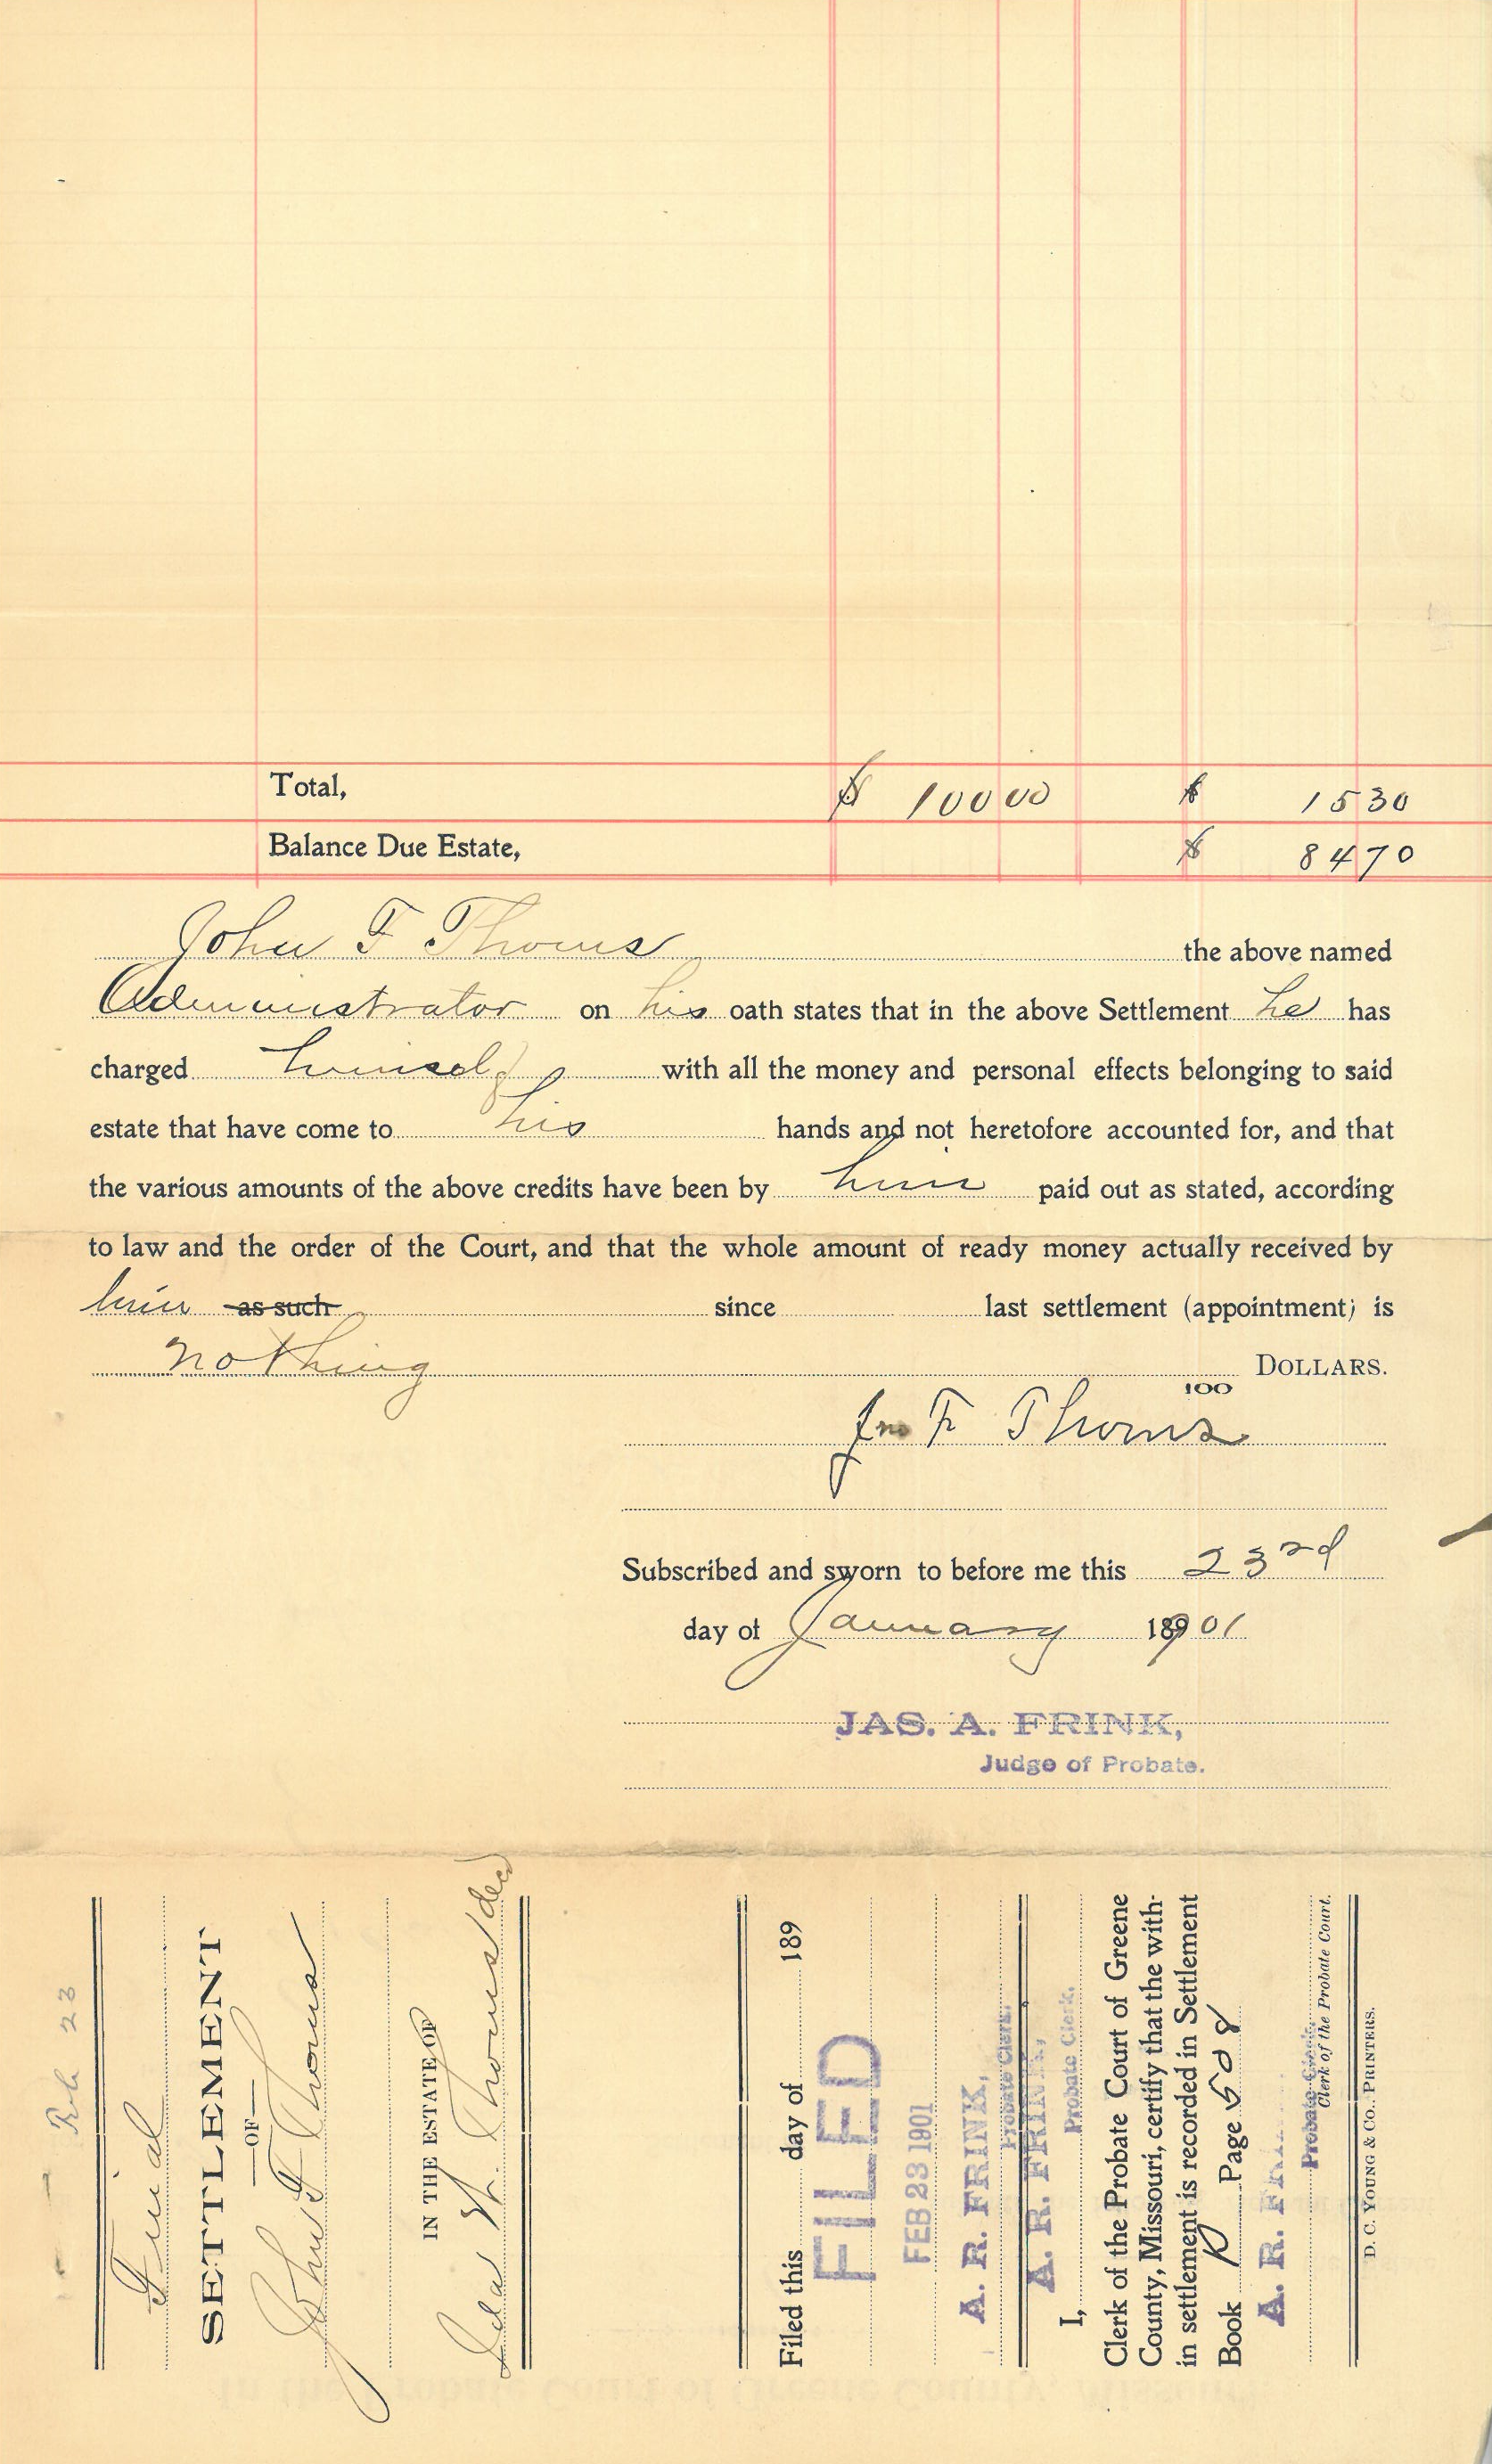 Total, $ 100 00 $ 15 30
Balance Due Estate, $ 84 70
John F Thoms the above named
Administrator on his oath states that in the above Settlement he has
charged himself with all the money and personal effects belonging to said
estate that have come to his hands and not heretofore accounted for, and that
the various amounts of the above credits have been by him paid out as stated, according
to law and the order of the Court, and that the whole amount of ready money actually received by
him as such since last settlement (appointment) is
nothing DOLLARS.
100
Jno F Thoms
Subscribed and sworn to before me this 23rd
day of January 18901
JAS. A. FRINK,
Judge of Probate.
Feb 23
Final
SETTLEMENT
—OF—
John F Thoms
IN THE ESTATE OF
Ida W. Thoms decd
Filed this day of 189
FILED
FEB 23 1901
A. R. FRINK,
Probate Clerk.
A. R. FRINK,
Probate Clerk.
I,
Clerk of the Probate Court of Greene
County, Missouri, certify that the with-
in settlement is recorded in Settlement
Book R Page 508
A. R. FRINK
Probate Clerk.
Clerk of the Probate Court.
D. C. YOUNG & CO., PRINTERS.